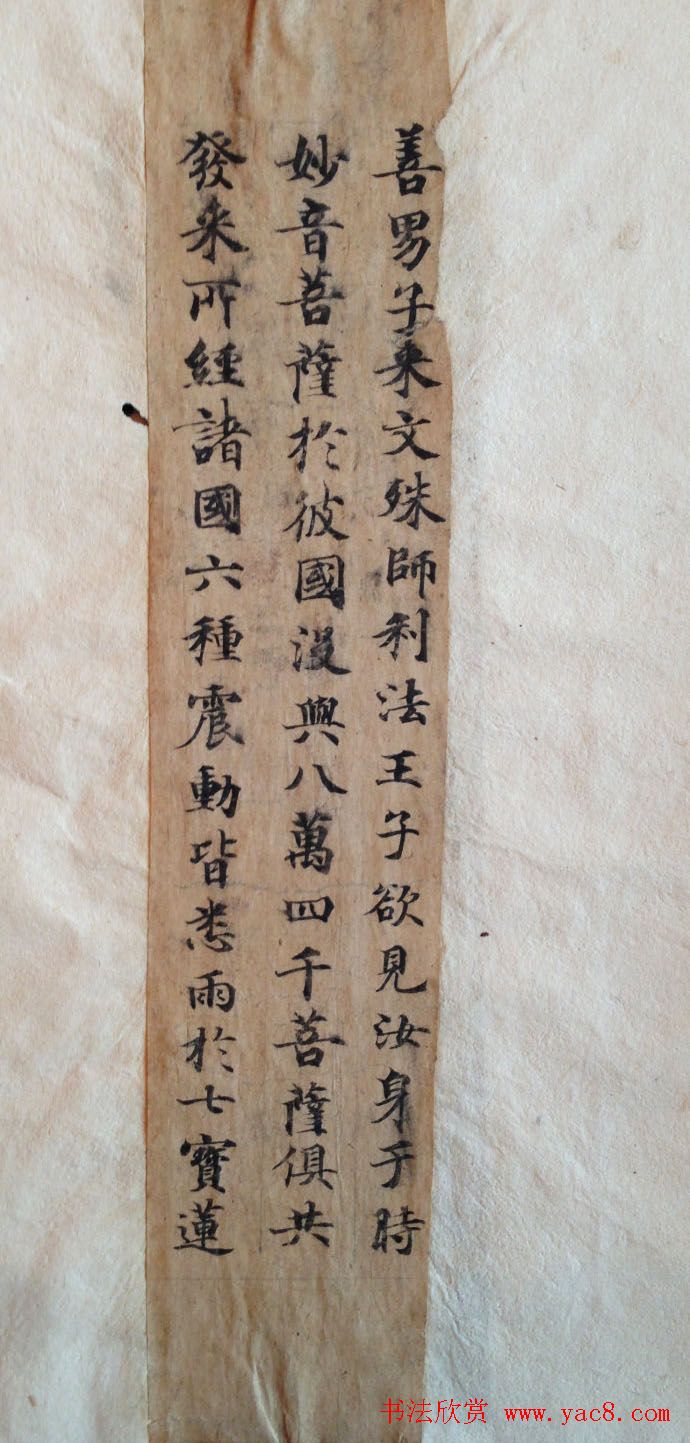 善男子来文殊師利法王子欲見汝身于時
妙音菩薩於彼國没與八萬四千菩薩俱共
發来所經諸國六種震動皆悉雨於七寶蓮
书法欣赏 www.yac8.com